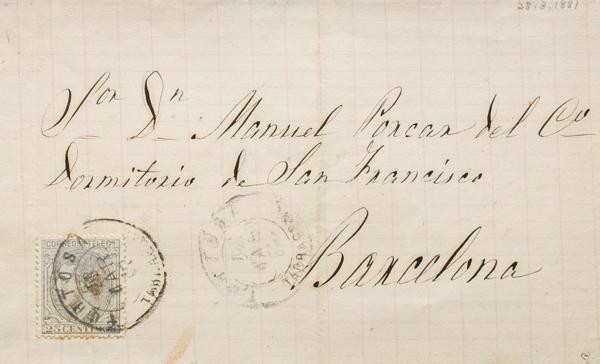 28.3.1881
Sor Dn Manuel Porcar del Co
Dormitorio de San Francisco
Barcelona
CORREOS Y TELEGS
TORTOSA
25 CENT
TORTOSA